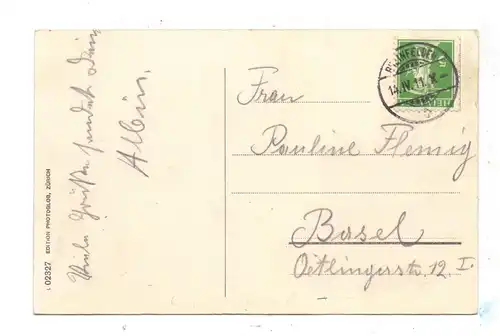 Viele Grüße sendet Dein
Albin.
02327 EDITION PHOTOGLOB, ZÜRICH
RHEINFELDEN
14.IV.11.X-
HELVETIA
Frau
Pauline Flemig
Basel
Oetlingerstr. 12. I.